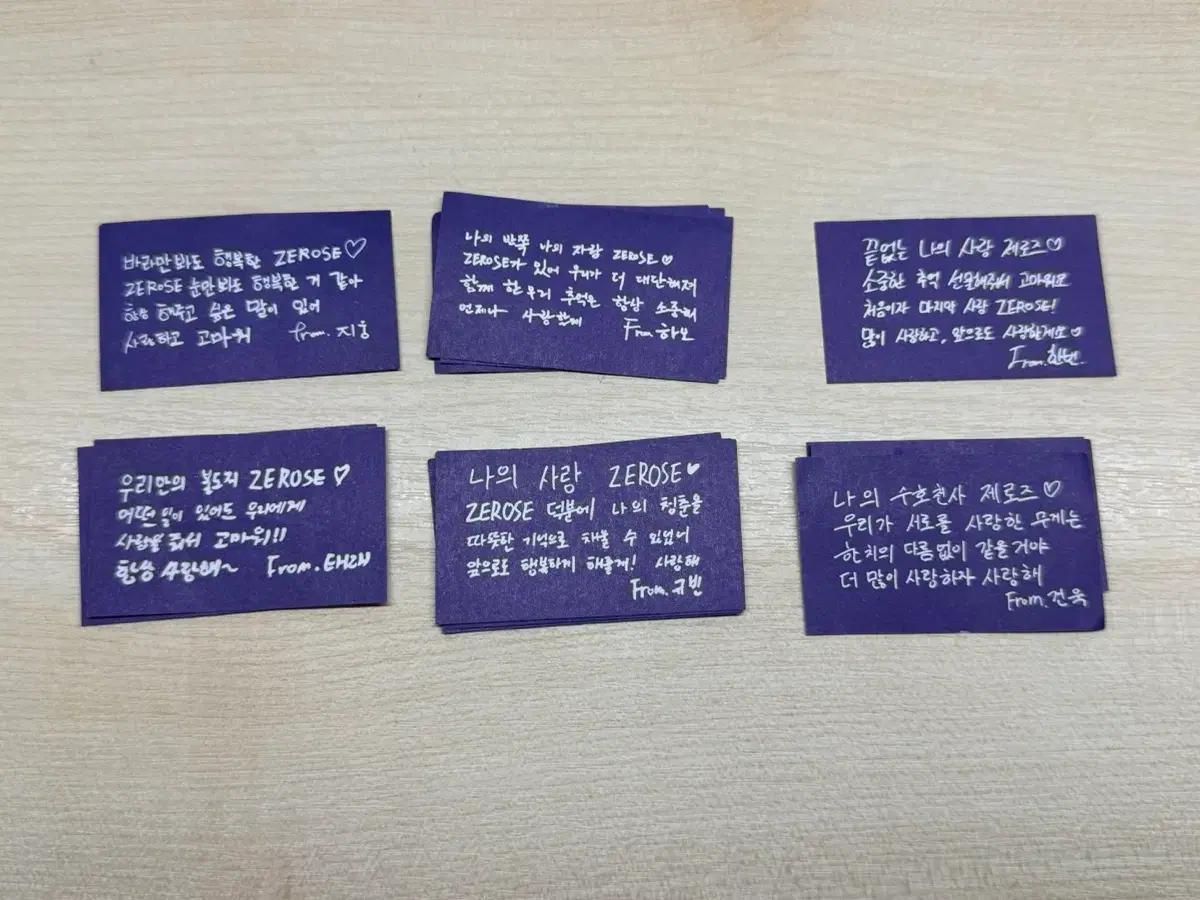 바라만 봐도 행복한 ZEROSE♡
ZEROSE 눈만 봐도 행복한 거 같아
항상 해주고 싶은 말이 있어
사랑하고 고마워 From. 지웅
나의 반쪽 나의 자랑 ZEROSE♡
ZEROSE가 있어 우리가 더 대단해져
함께 한 우리 추억은 항상 소중해
언제나 사랑한해 From 하오
끝없는 나의 사랑 제로즈♡
소중한 추억 선물해줘서 고마워요
처음이자 마지막 사랑 ZEROSE!
많이 사랑하고, 앞으로도 사랑할게요♡
From. 한빈.
우리만의 ZEROSE♡
어떤 일이 있어도 우리에게
사랑을 줘서 고마워!!
항상 사랑해~ From. 태래
나의 사랑 ZEROSE♥
ZEROSE 덕분에 나의 청춘을
따뜻한 기억으로 채울 수 있었어
앞으로도 행복하게 해줄게! 사랑해
From. 규빈
나의 수호천사 제로즈♡
우리가 서로를 사랑한 무게는
한치의 다름없이 같을거야
더 많이 사랑하자 사랑해
From. 건욱